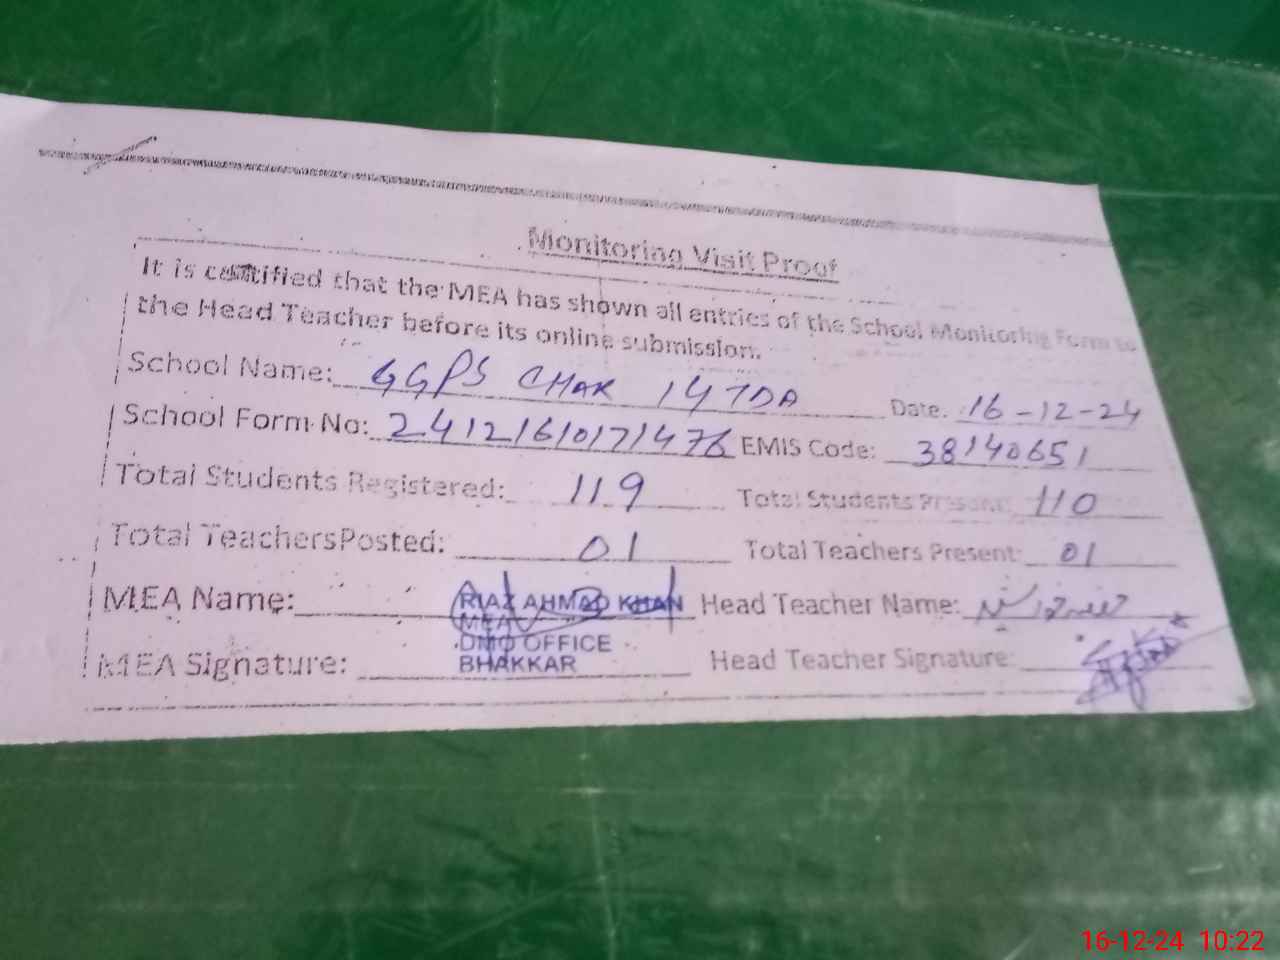 Monitoring Visit Proof
It is certified that the MEA has shown all entries of the School Monitoring Form to
the Head Teacher before its online submission.
School Name: GGPS CHAK 14 TDA Date: 16-12-24
School Form No: 24121610171476 EMIS Code: 38140651
Total Students Registered: 119 Total Students Present: 110
Total Teachers Posted: 01 Total Teachers Present: 01
MEA Name: RIAZ AHMAD KHAN Head Teacher Name:
MEA
DMO OFFICE
MEA Signature: BHAKKAR Head Teacher Signature:
16-12-24 10:22